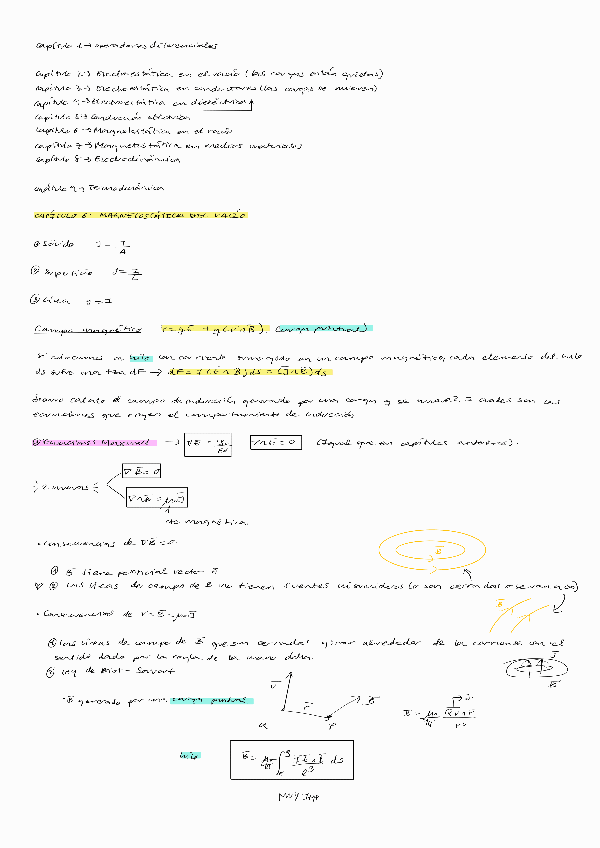 Capítulo 1 → operadores diferenciales
Capítulo 2 → Electrostática en el vacío (las cargas están quietas)
Capítulo 3 → Electrostática en conductores (las cargas se mueven)
Capítulo 4 → Electrostática en dieléctricos
Capítulo 5 → Conducción eléctrica
Capítulo 6 → Magnetostática en el vacío
Capítulo 7 → Magnetostática en medios materiales
Capítulo 8 → Electrodinámica
Capítulo 9 → Termodinámica
CAPÍTULO 6: MAGNETOSTÁTICA EN EL VACÍO
① Sólido J = I/A
② Superficie J = I/L
③ Línea J = I
Campo magnético F = qE + q(v∧B) (carga puntual)
Si colocamos un hilo con corriente sumergido en un campo magnético, cada elemento del hilo
ds sufre una fza dF → dF = I(t∧B)ds = (J∧B)ds
① Ecuaciones Maxwell → ∇E = ∇∧E = 0 (Igual que en capítulos anteriores).
2 nuevas ∇B = 0
∇∧B = μJ
cte magnética
• Consecuencias de ∇B = 0
① B tiene potencial vector A
② Las líneas de campo de B no tienen fuentes ni sumideros (o son cerradas o se van a ∞)
• Consecuencias de ∇∧B = μJ
① Las líneas de campo de B que son cerradas giran alrededor de la corriente con el
sentido dado por la regla de la mano dcha.
② Ley de Biot-Savart
B generado por una carga puntual
hilo